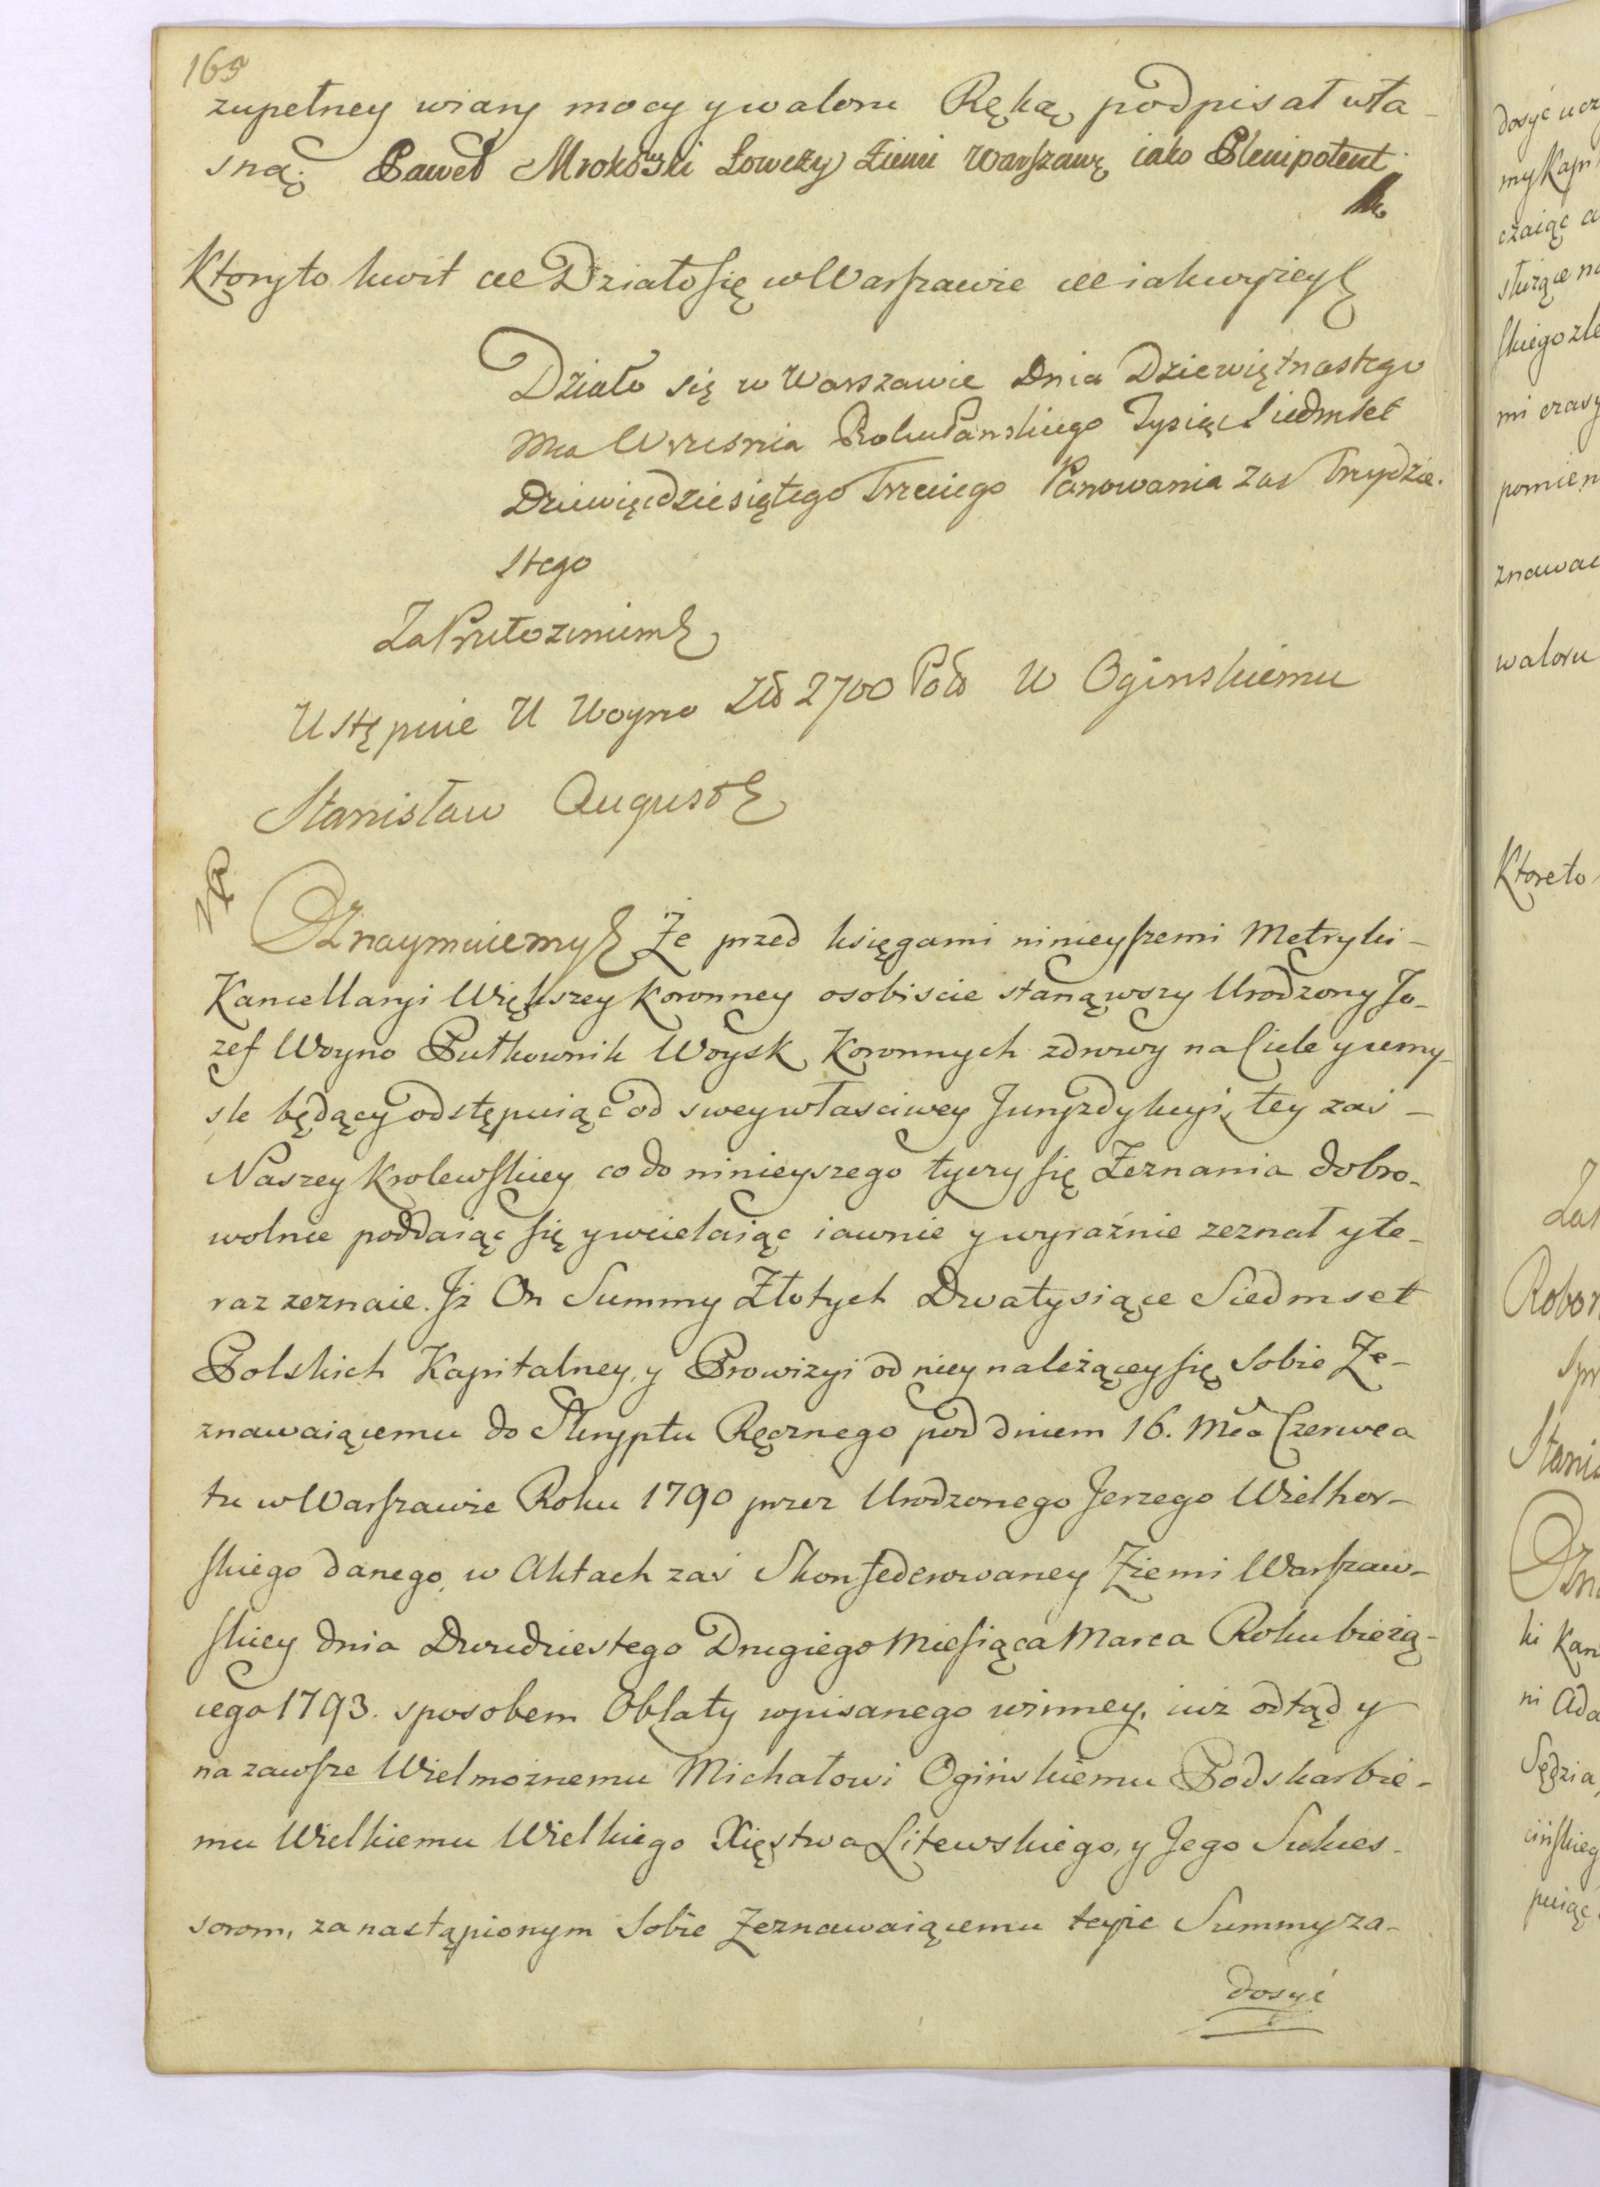 165
zupełney wiary mocy y waloru Ręką podpisał wła-
sną. Paweł Mrokowski Łowczy Ziemi Warszawę iako Plenipotent
Ktoryto kwit etc Działo się w Warszawie etc iak wyżey
Działo się w Warszawie Dnia Dziewiętnastego
Mca Wrzesnia Roku Panskiego Tysiąc Siedmset
Dziewięcdziesiątego Trzeciego Panowania zas Trzydzie-
stego
Za Przełożeniem
Ustępuie U Woyno Zło 2700 Pols W Oginskiemu
Stanisław August
Oznaymuiemy Że przed księgami ninieyszemi Metryki-
Kancellaryi Większey Koronney osobiscie stanąwszy Urodzony Jo-
zef Woyno Pułkownik Woysk Koronnych zdrowy na Ciele y umy-
sle będący odstępuiąc od swey własciwey Juryzdykcyi, tey zaś-
Naszey Krolewskiey co do ninieyszego tyczy się Zeznania dobro-
wolnie poddaiąc się y wcielaiąc iawnie y wyraźnie zeznał y te-
raz zeznaie. Jż On Summy Złotych Dwatysiące Siedmset
Polskich Kapitalney, y Prowizyi od niey należącey się Sobie Ze-
znawaiącemu do Skryptu Ręcznego pod dniem 16. Mca Czerwca
tu w Warszawie Roku 1790 przez Urodzonego Jerzego Wielhor-
skiego danego, w Aktach zaś Skonfederowaney Ziemi Warszaw-
skiey dnia Dwudziestego Drugiego Miesiąca Marca Roku bieżą-
cego 1793. sposobem Oblaty wpisanego winney, iuż odtąd y
na zawsze Wielmożnemu Michałowi Ogińskiemu Podskarbie-
mu Wielkiemu Wielkiego Xięstwa Litewskiego, y Jego Sukces-
sorom, za nastąpionym Sobie Zeznawaiącemu teyże Summy za-
dosyć